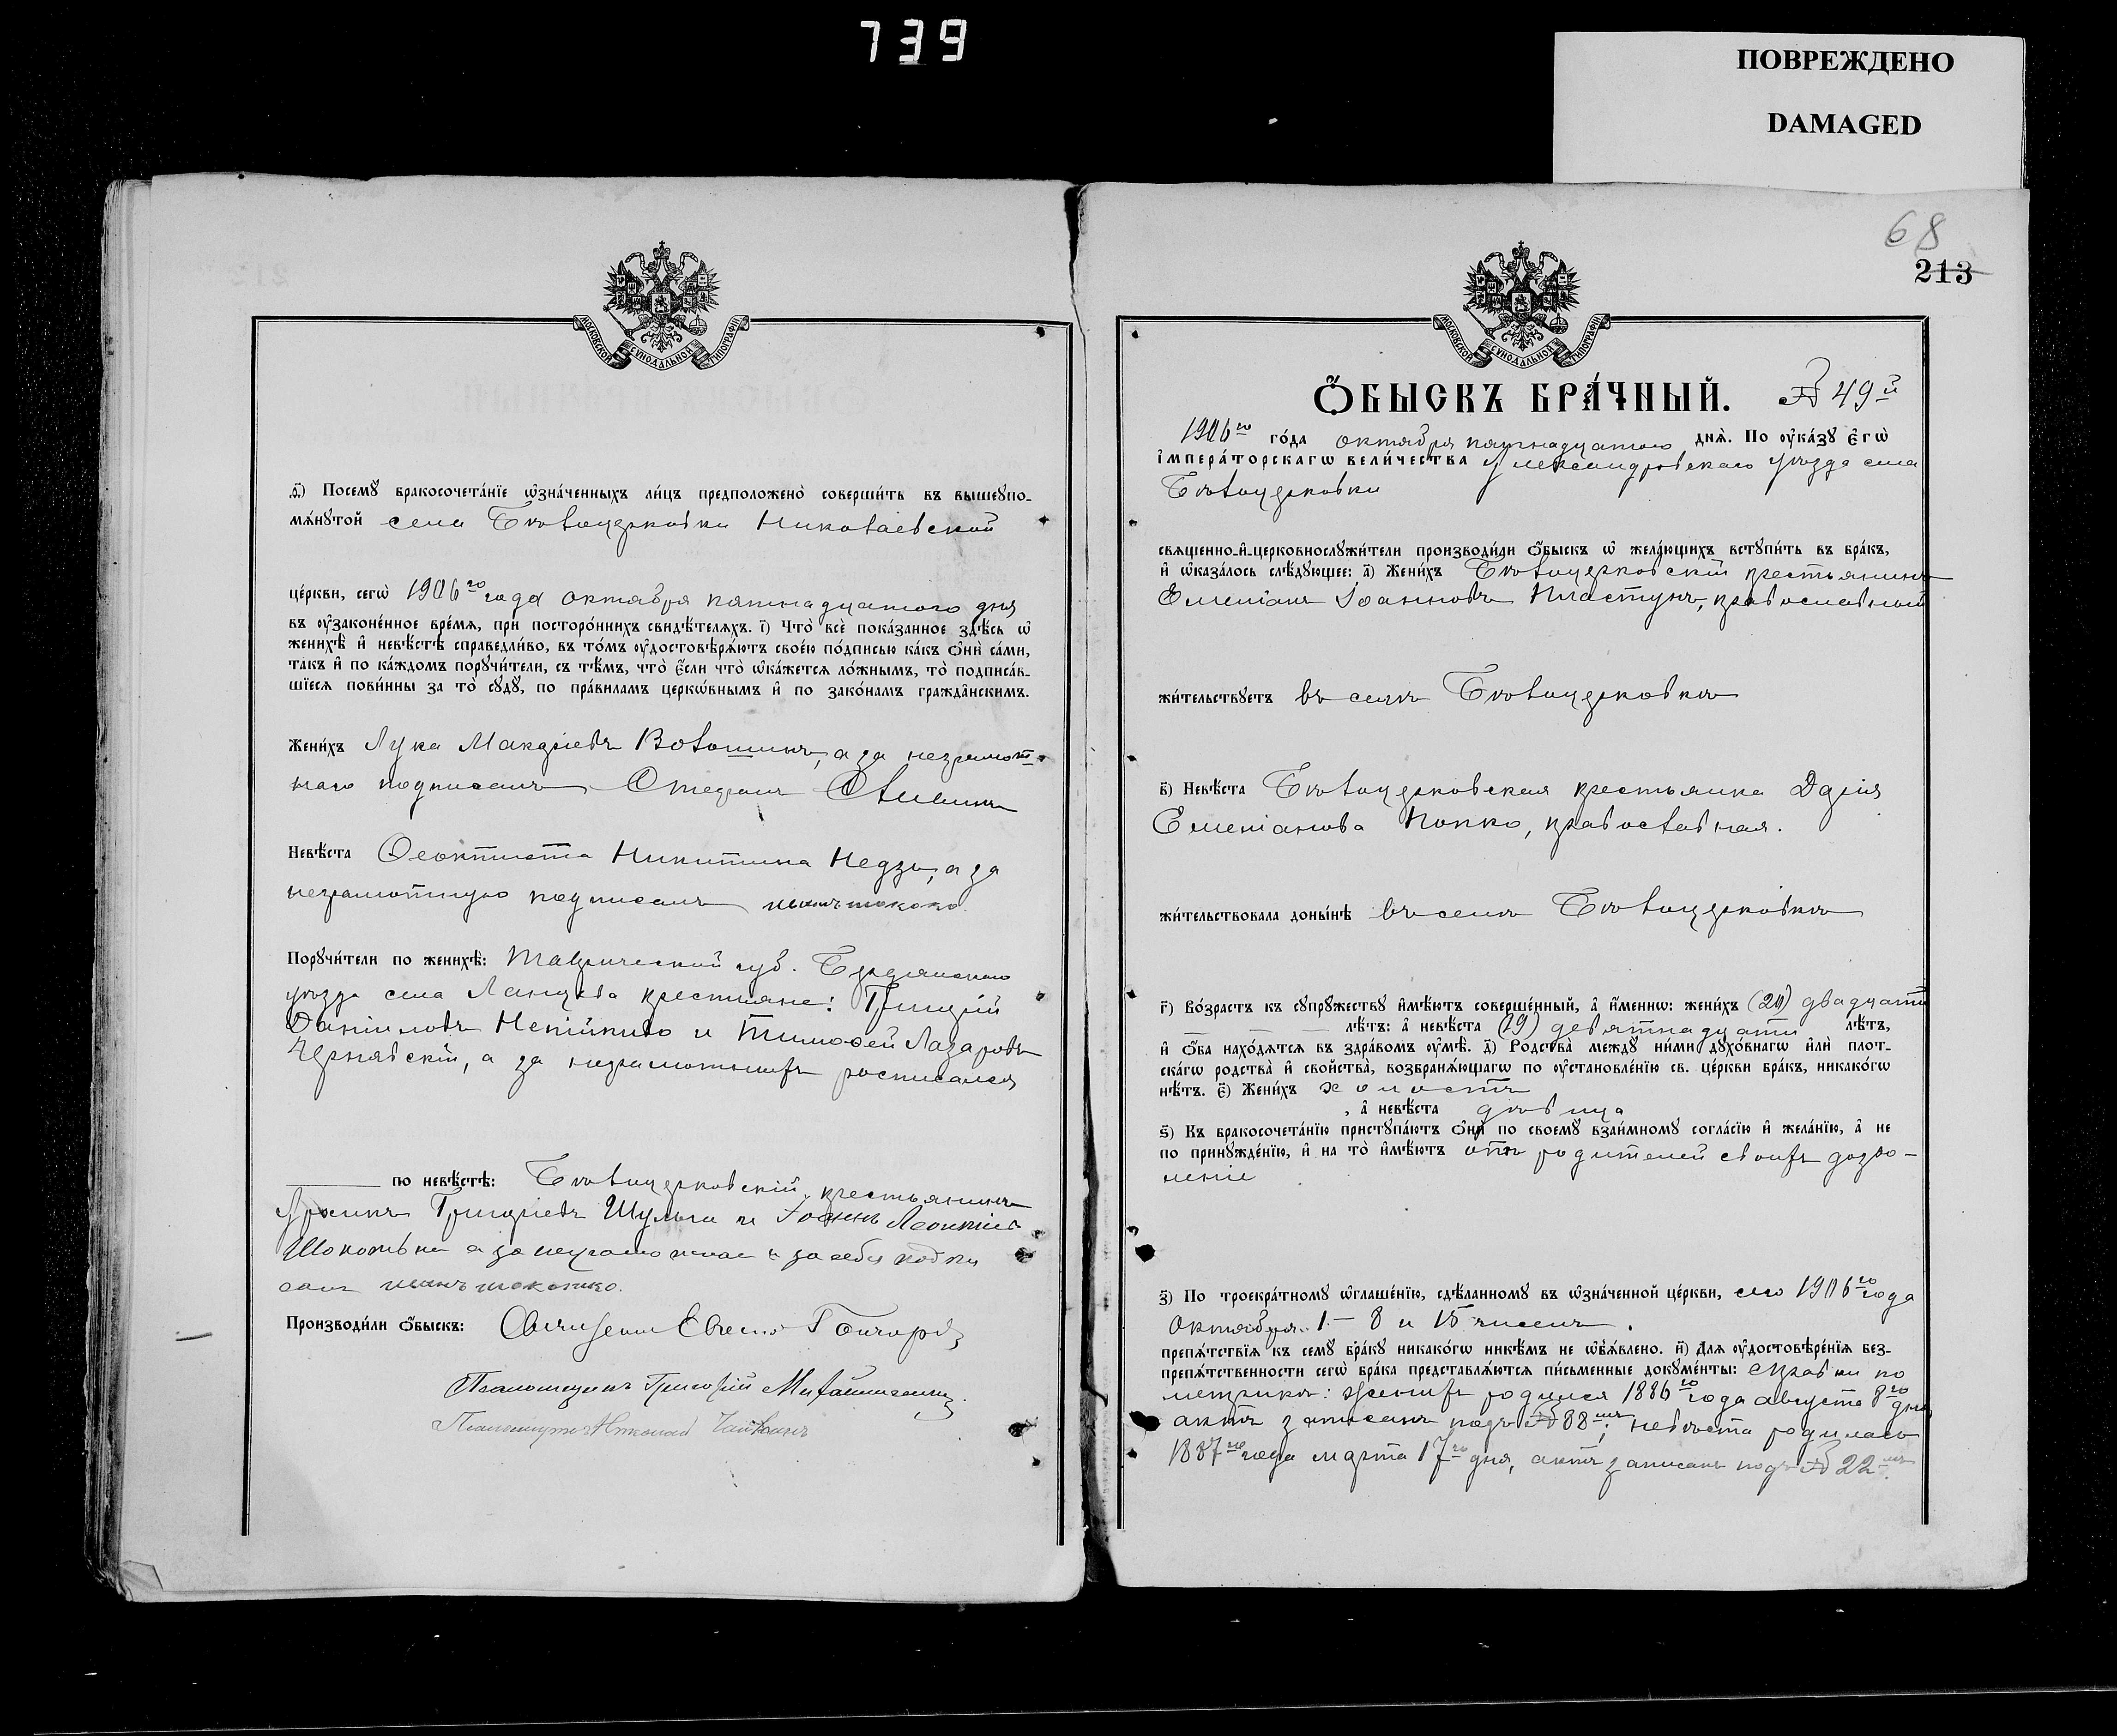 739
ПОВРЕЖДЕНО
DAMAGED
МОСКОВСКОЙ СѴНОДАЛЬНОЙ ТИПОГРАФІИ
ѳ҃) Посемꙋ бракосочета́нїе ѡ҆зна́ченныхъ ли́цъ предположено̀ соверши́ть въ вышеꙋпо-
мѧ́нꙋтой села Бѣлоцерковки Николаевской
це́ркви, сегѡ̀ 1906го года октября пятнадцатого дня
въ ᲂу҆зако́ненное вре́мѧ, при посторо́ннихъ свидѣ́телѧхъ. і҃) Что̀ всѐ пока́занное здѣ́сь ѡ҆
женихѣ̀ и҆ невѣ́стѣ справедли́во, въ то́мъ ᲂу҆достовѣрѧ́ютъ свое́ю по́дписью ка́къ ѻ҆нѝ са́ми,
та́къ и҆ по ка́ждомъ порꙋчи́тели, съ тѣ́мъ, что̀ є҆́сли что̀ ѡ҆ка́жетсѧ ло́жнымъ, то̀ подписа́в-
шїесѧ пови́нны за то̀ сꙋдꙋ̀, по пра́виламъ церкѡ́внымъ и҆ по зако́намъ гражда̑нскимъ.
Жени́хъ Лука Макаріевъ Волошинъ, а за неграмот-
наго подписалъ Стефанъ
Невѣ́ста Феоктиста Никитина Недзъ, а за
неграмотную подписалъ
Порꙋчи́тели по женихѣ̀: Таврической губ. Бердянскаго
уѣзда села крестьяне: Григорій
Даніиловъ и Тимоѳей Лазаревъ
Чернявскій, а за неграмотныхъ росписался
по невѣ́стѣ: Бѣлоцерковскій крестьянинъ
Григоріевъ Шульга и Іоаннъ Леонтіев
а за неграмотнаго и за себя подпи
салъ
Производи́ли ѻ҆́быскъ: Священникъ Гончаровъ
Псаломщикъ Григорій
Псаломщикъ Николай
68
213
МОСКОВСКОЙ СѴНОДАЛЬНОЙ ТИПОГРАФІИ
Ѻ҆́БЫСКЪ БРА́ЧНЫЙ. № 49й
1906го го́да октября пятнадцатого днѧ̀. По ᲂу҆ка́зꙋ є҆гѡ̀
і҆мпера́торскагѡ вели́чества Александровскаго уѣзда села
Бѣлоцерковки
свѧще́нно-и҆-церковнослꙋжи́тели производи́ли ѻ҆́быскъ ѡ҆ жела́ющихъ встꙋпи́ть въ бра́къ,
и҆ ѡ҆каза́лось слѣ́дꙋющее: а҃) Жени́хъ Бѣлоцерковскій крестьянинъ
Емеліанъ Іоанновъ Пластунъ, православный
жи́тельствꙋетъ въ селѣ Бѣлоцерковкѣ
в҃) Невѣ́ста Бѣлоцерковская крестьянка Дарія
Емеліанова Попко, православная.
жи́тельствовала доны́нѣ въ селѣ Бѣлоцерковкѣ
г҃) Во́зрастъ къ сꙋпрꙋ́жествꙋ и҆мѣ́ютъ соверше́нный, а҆ и҆́меннѡ: жени́хъ (20) двадцати
лѣ́тъ: а҆ невѣ́ста (19) девятнадцати лѣ́тъ,
и҆ ѻ҆́ба нахо́дѧтсѧ въ здра́вомъ ᲂу҆мѣ̀. д҃) Родства̀ междꙋ̀ ни́ми дꙋхо́внагѡ и҆лѝ плот-
ска́гѡ родства̀ и҆ свойства̀, возбранѧ́ющагѡ по ᲂу҆становле́нїю св. це́ркви бра́къ, никако́гѡ
нѣ́тъ. є҃) Жени́хъ холостъ
, а҆ невѣ́ста дѣвица
ѕ҃) Къ бракосочета́нїю пристꙋпа́ютъ ѻ҆нѝ по своемꙋ̀ взаи́мномꙋ согла́сїю и҆ жела́нїю, а҆ не
по принꙋжде́нїю, и҆ на то̀ и҆мѣ́ютъ отъ родителей своихъ дозво-
леніе
з҃) По троекра́тномꙋ ѡ҆глаше́нїю, сдѣ́ланномꙋ въ ѡ҆зна́ченной це́ркви, сего 1906го года
Октября. 1 – 8 и 15 чиселъ.
препѧ́тствїѧ къ семꙋ̀ бра́кꙋ никако́гѡ никѣ́мъ не ѡ҆б̾ѧ́влено. и҃) Длѧ ᲂу҆достовѣре́нїѧ без-
препѧ́тственности сегѡ̀ бра́ка представлѧ́ютсѧ пи́сьменные докꙋме́нты: справки по
метрикѣ: женихъ родился 1886го года августа 8го дня,
актъ записанъ подъ № 88мъ; невѣста родилась
1887го года марта 17го дня, актъ записанъ подъ № 22мъ.